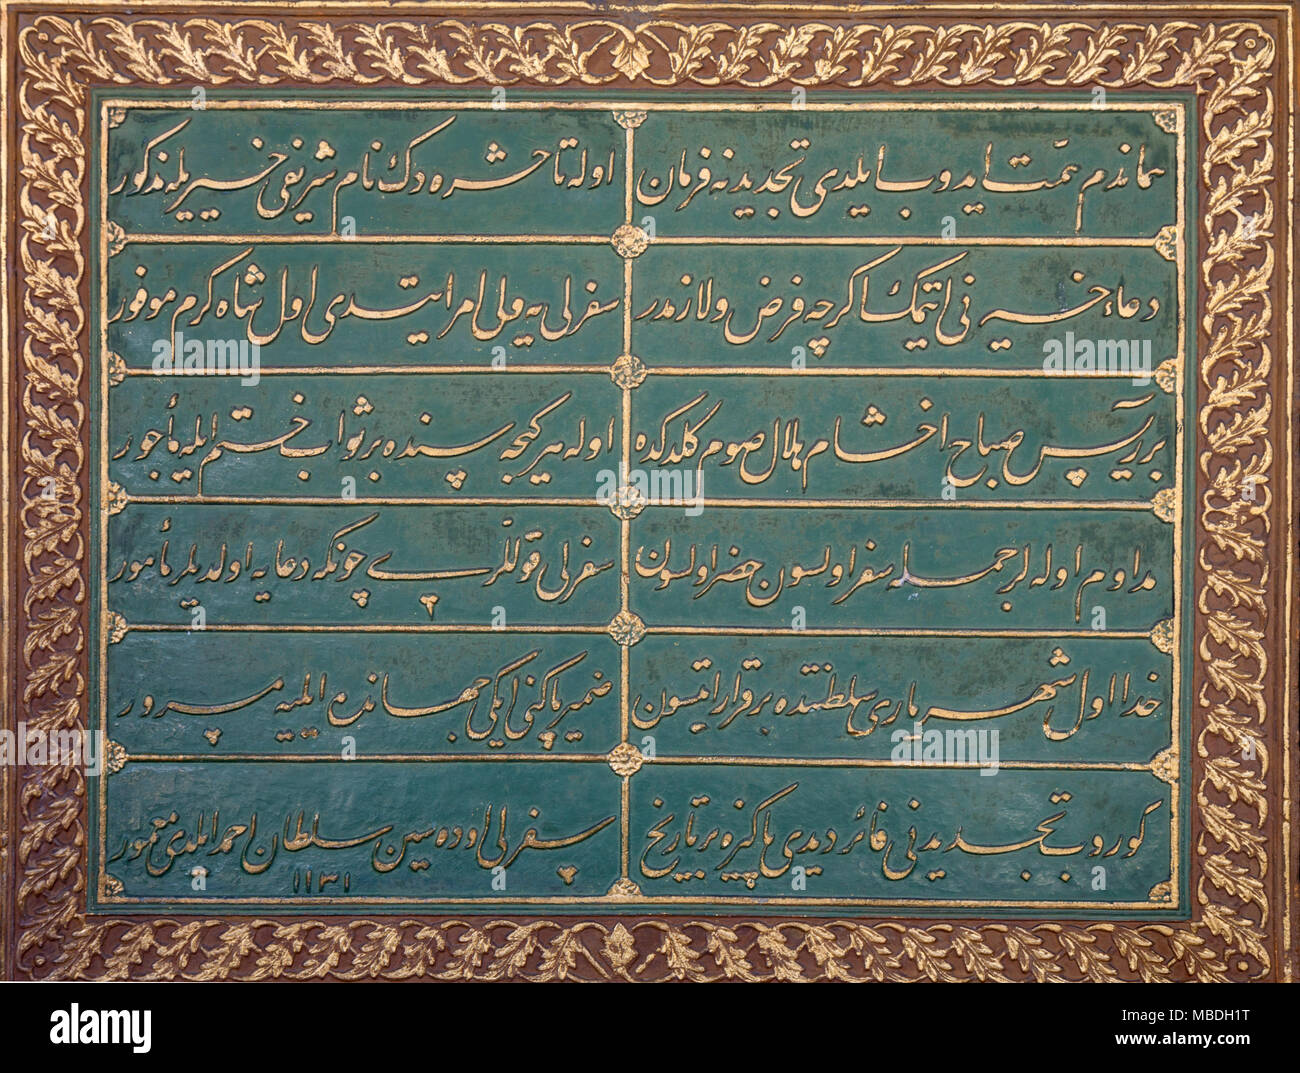 هماندم همت ایدوب ایلدی تجدیدنه فرمان
اوله تا حشره دك نام شریفی خیریله مذكور
دعاء خیرنی ایتمك اكرچه فرض و لازمدر
سفرلی یه ولی امر ایتدی اول شاه كرم موفور
صباح اخشام
اوله هر كیجه سنده بر ثواب ختم ایله مأجور
مداوم اوله لر جمله سفر اولسون حضر اولسون
سفرلی قوللری چونكه دعایه اولدیلر مأمور
خدا اول شهریاری سلطنتده برقرار ایتسون
ضمیر پاكنی ایكی جهانده ایلیه مسرور
كوروب تجدیدنی فائز دیدی پاكیزه بر تاریخ
سفرلی اوده سین سلطان احمد ایلدی معمور
١١٣١
alamy stock photo
MBDH1T